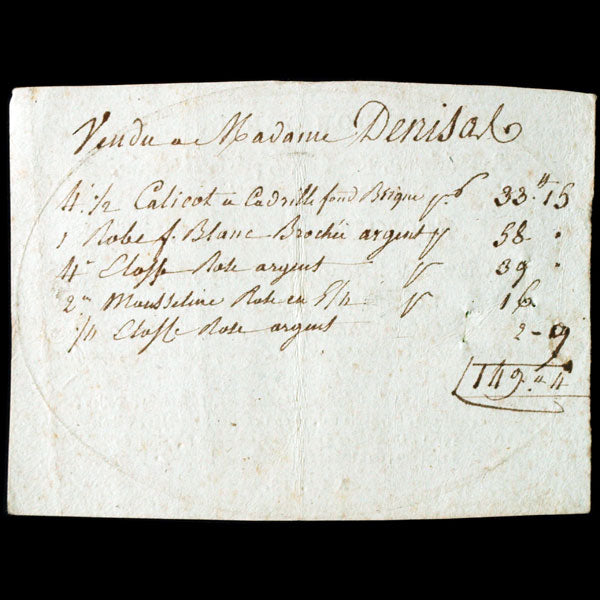 Vendu a Madame Denisal
4" 1/2 Calicot a Cadrille fond Brique 33." 15
1 Robe f. Blanc Brochée argent 58 "
4" Etoffe Rose argent 39 "
2" Mousseline Rose en 5/4 16
1/4 Etoffe Rose argent 2 - 9
149." 4